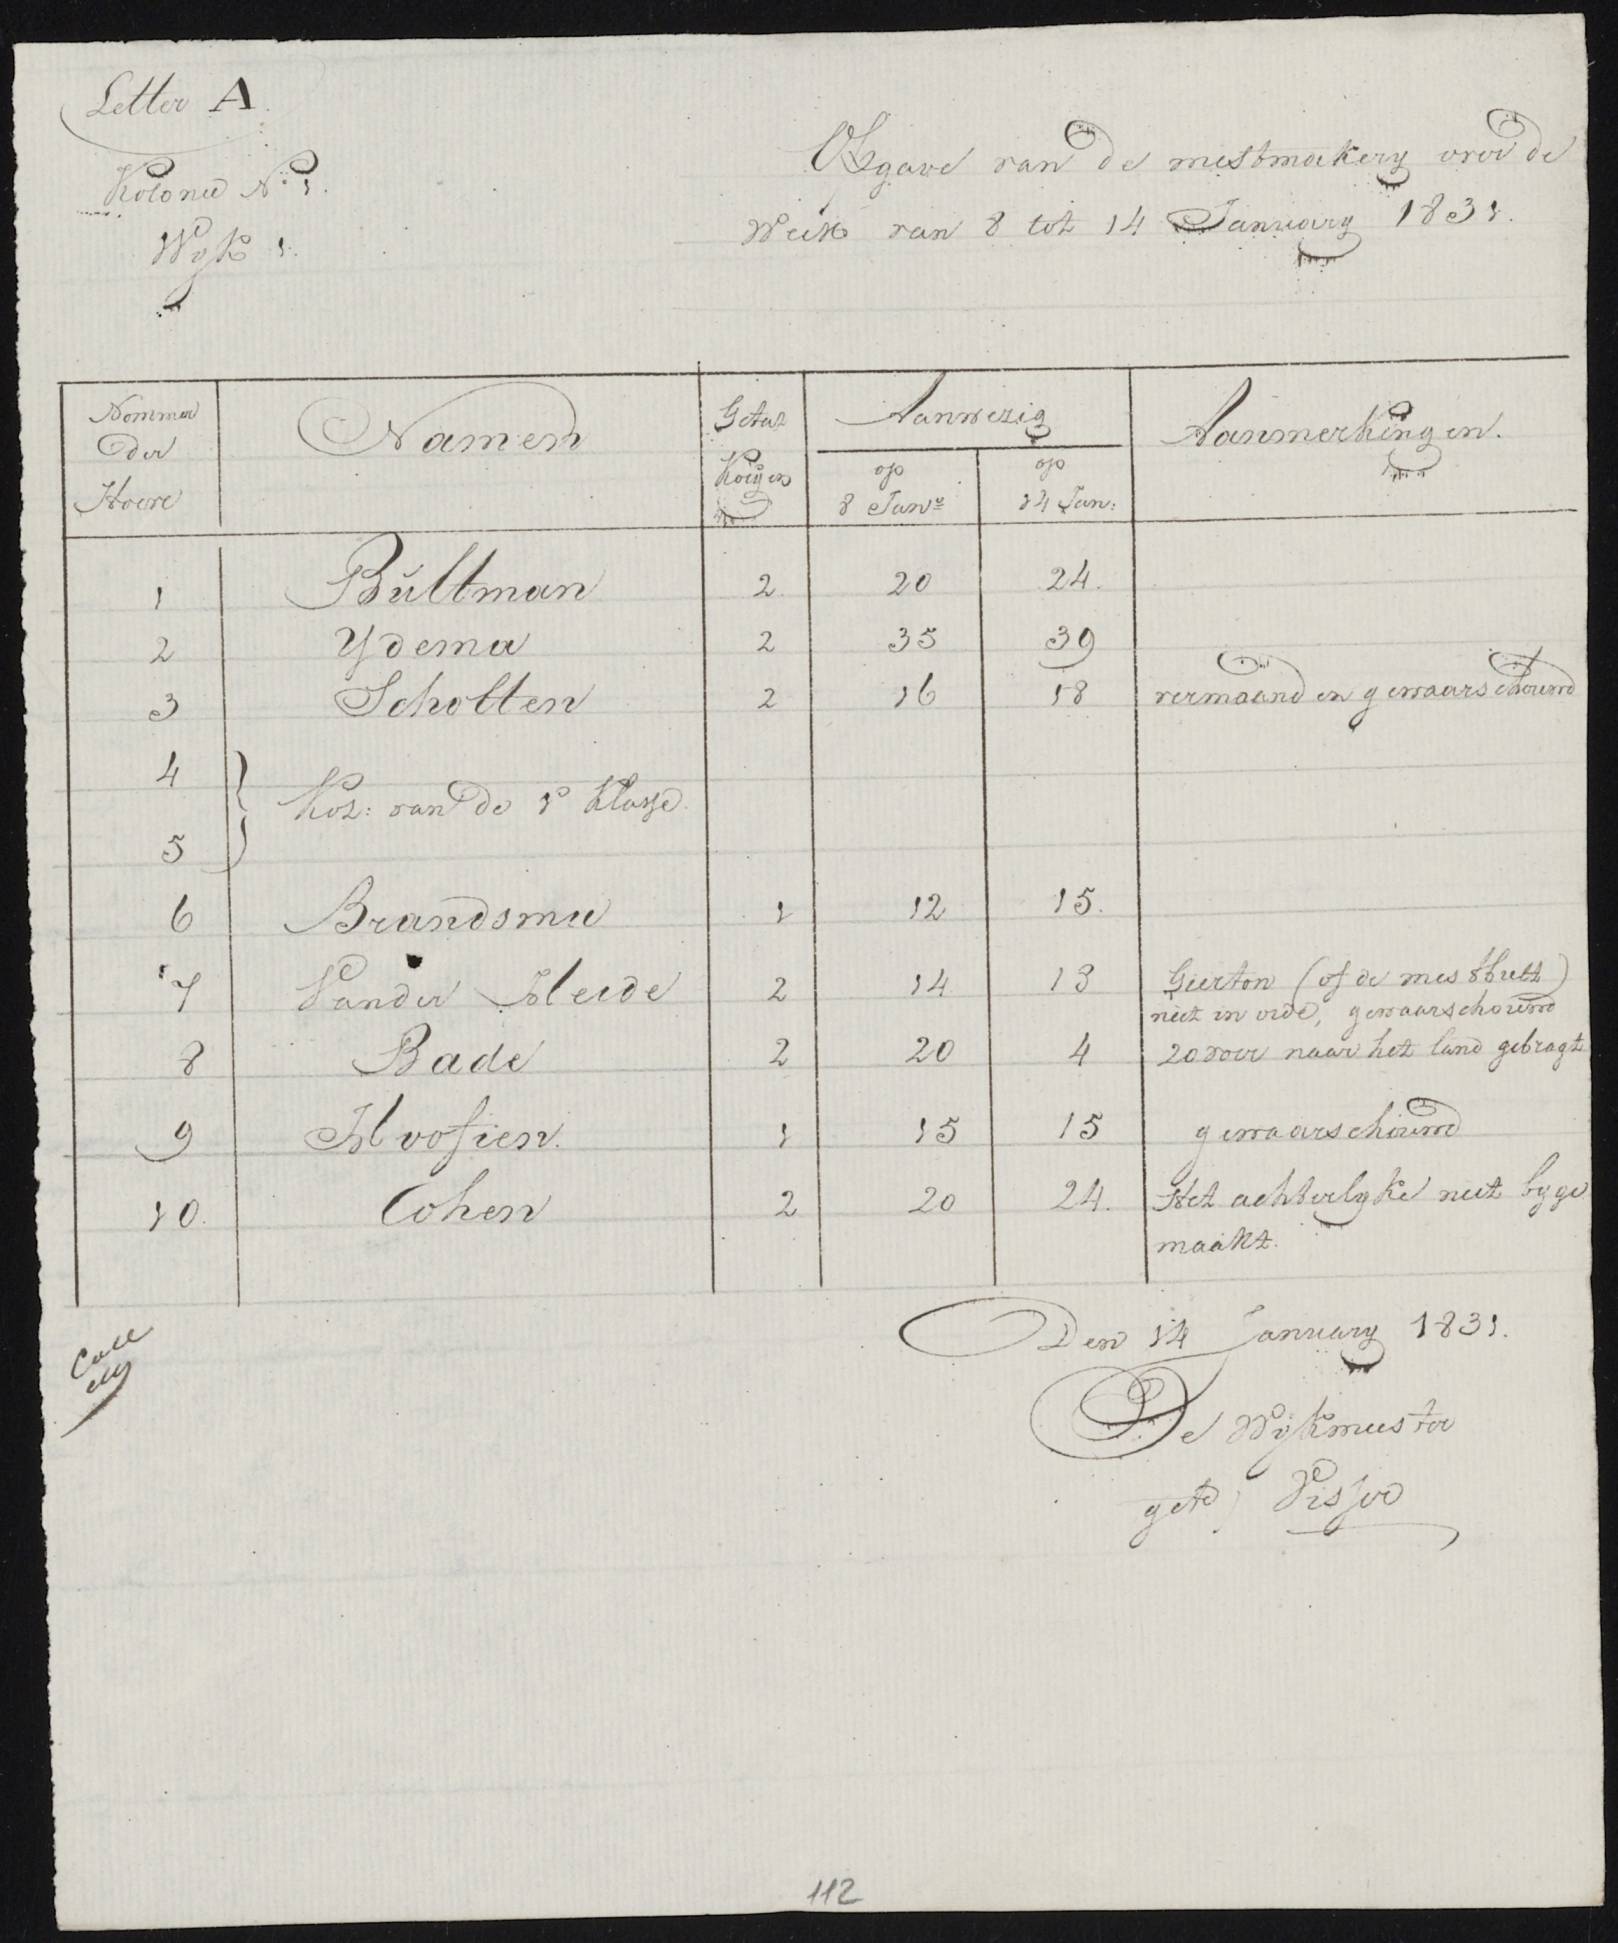 Letter A.
Kolonie N° 1.
Wyk 1.
Opgave van de mestmakery over de
Week van 8 tot 14 January 1831.
Nommer der Hoeve | Namen | Getal Koeyen | Aanwezig op 8 Jan: | op 14 Jan: | Aanmerkingen.
1 Bultman 2 20 24.
2 Ydema 2 35 39
3 Scholten 2 16 18 vermaand en gewaarschouwd
4
Kol: van de 1e Klasse.
5
6 Brandsma 1 12 15.
7 Van der Heide 2 14 18 Gierton (of de mestbult)
niet in orde, gewaarschouwd
8 Bade 2 20 4 20 voer naar het land gebragt
9 Hoofien. 1 15 15 gewaarschouwd
10. Cohen 2 20 24. Het achterlyke niet byge
maakt.
Den 14 January 1831.
De Wykmeester
getd) Visser
112